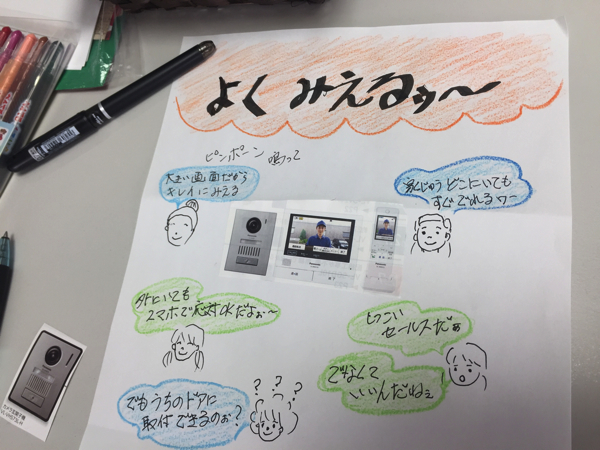 よく みえるぅ〜
ピンポーン 鳴って
大きい画面だから
キレイにみえる
家じゅうどこにいても
すぐでれるワー
外にいても
スマホで応対OKだよぉ〜
しつこい
セールスだぁ
でなくて
いいんだねぇ
でもうちのドアに
取付できるのぉ?
? ? ?
Panasonic
カメラ玄関子機